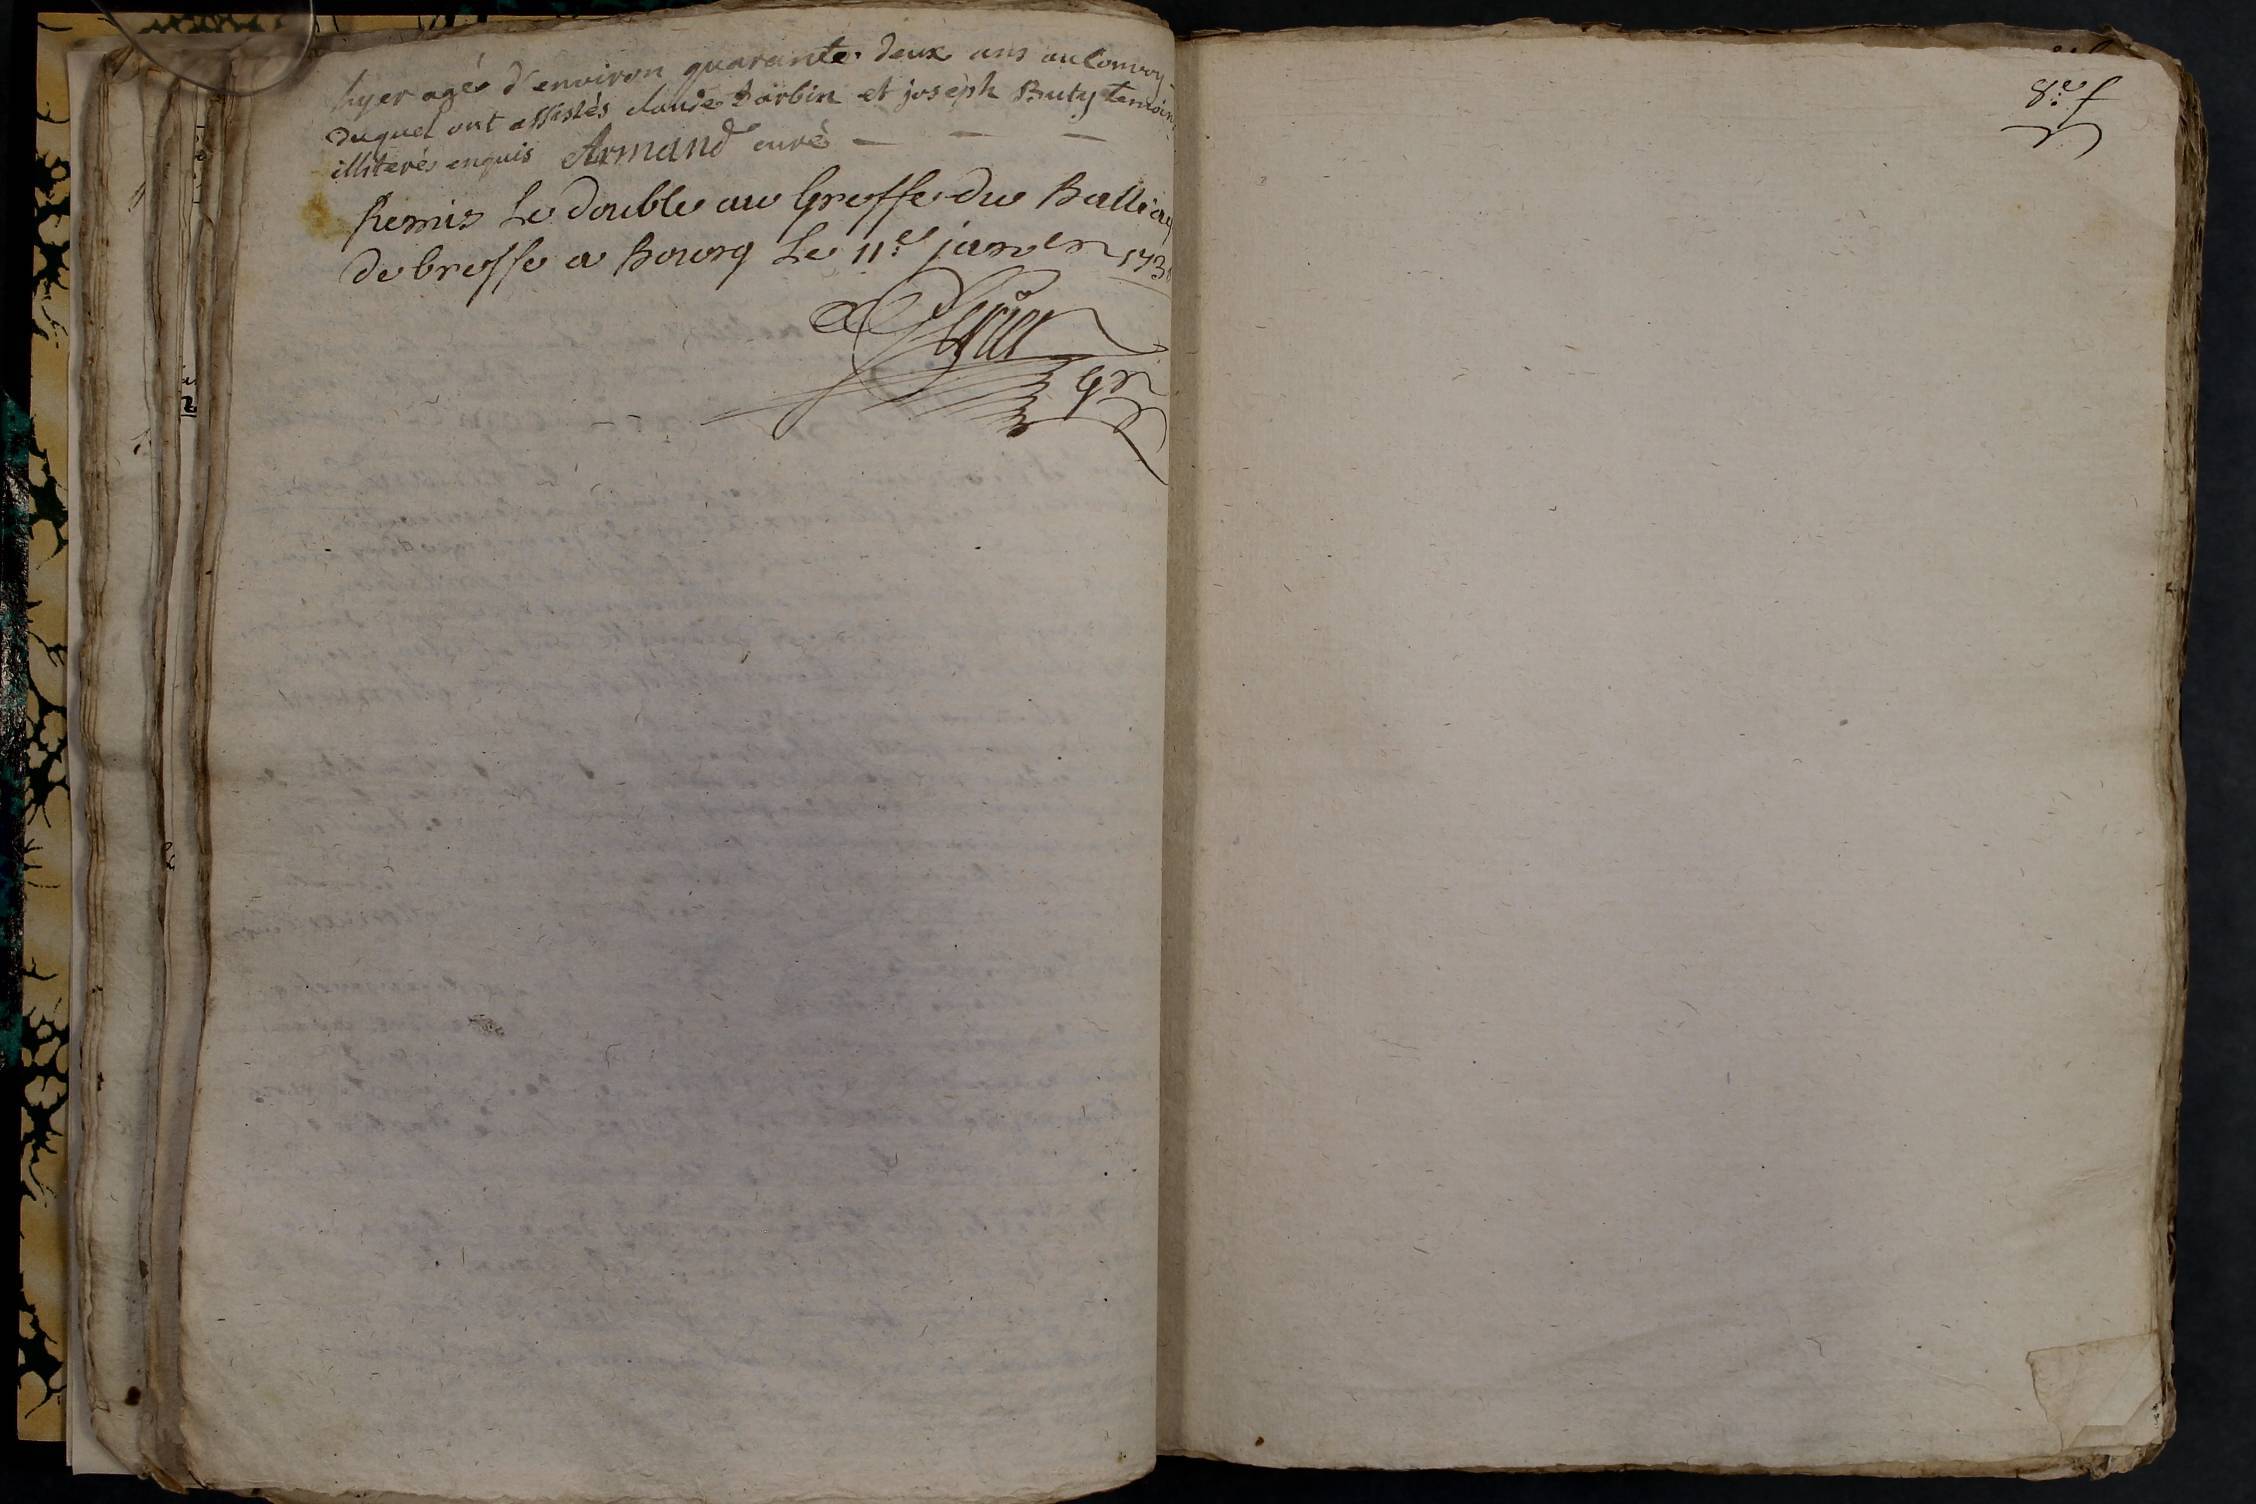 hyer agé d'environ quarante deux ans au Convoy
duquel ont assistés claude darbin et joseph Buty temoins
illiterés enquis Armand curé
Remis Le double au Greffe du Balliag
de bresse a Bourg Le 11.e janvier 173
8.e f